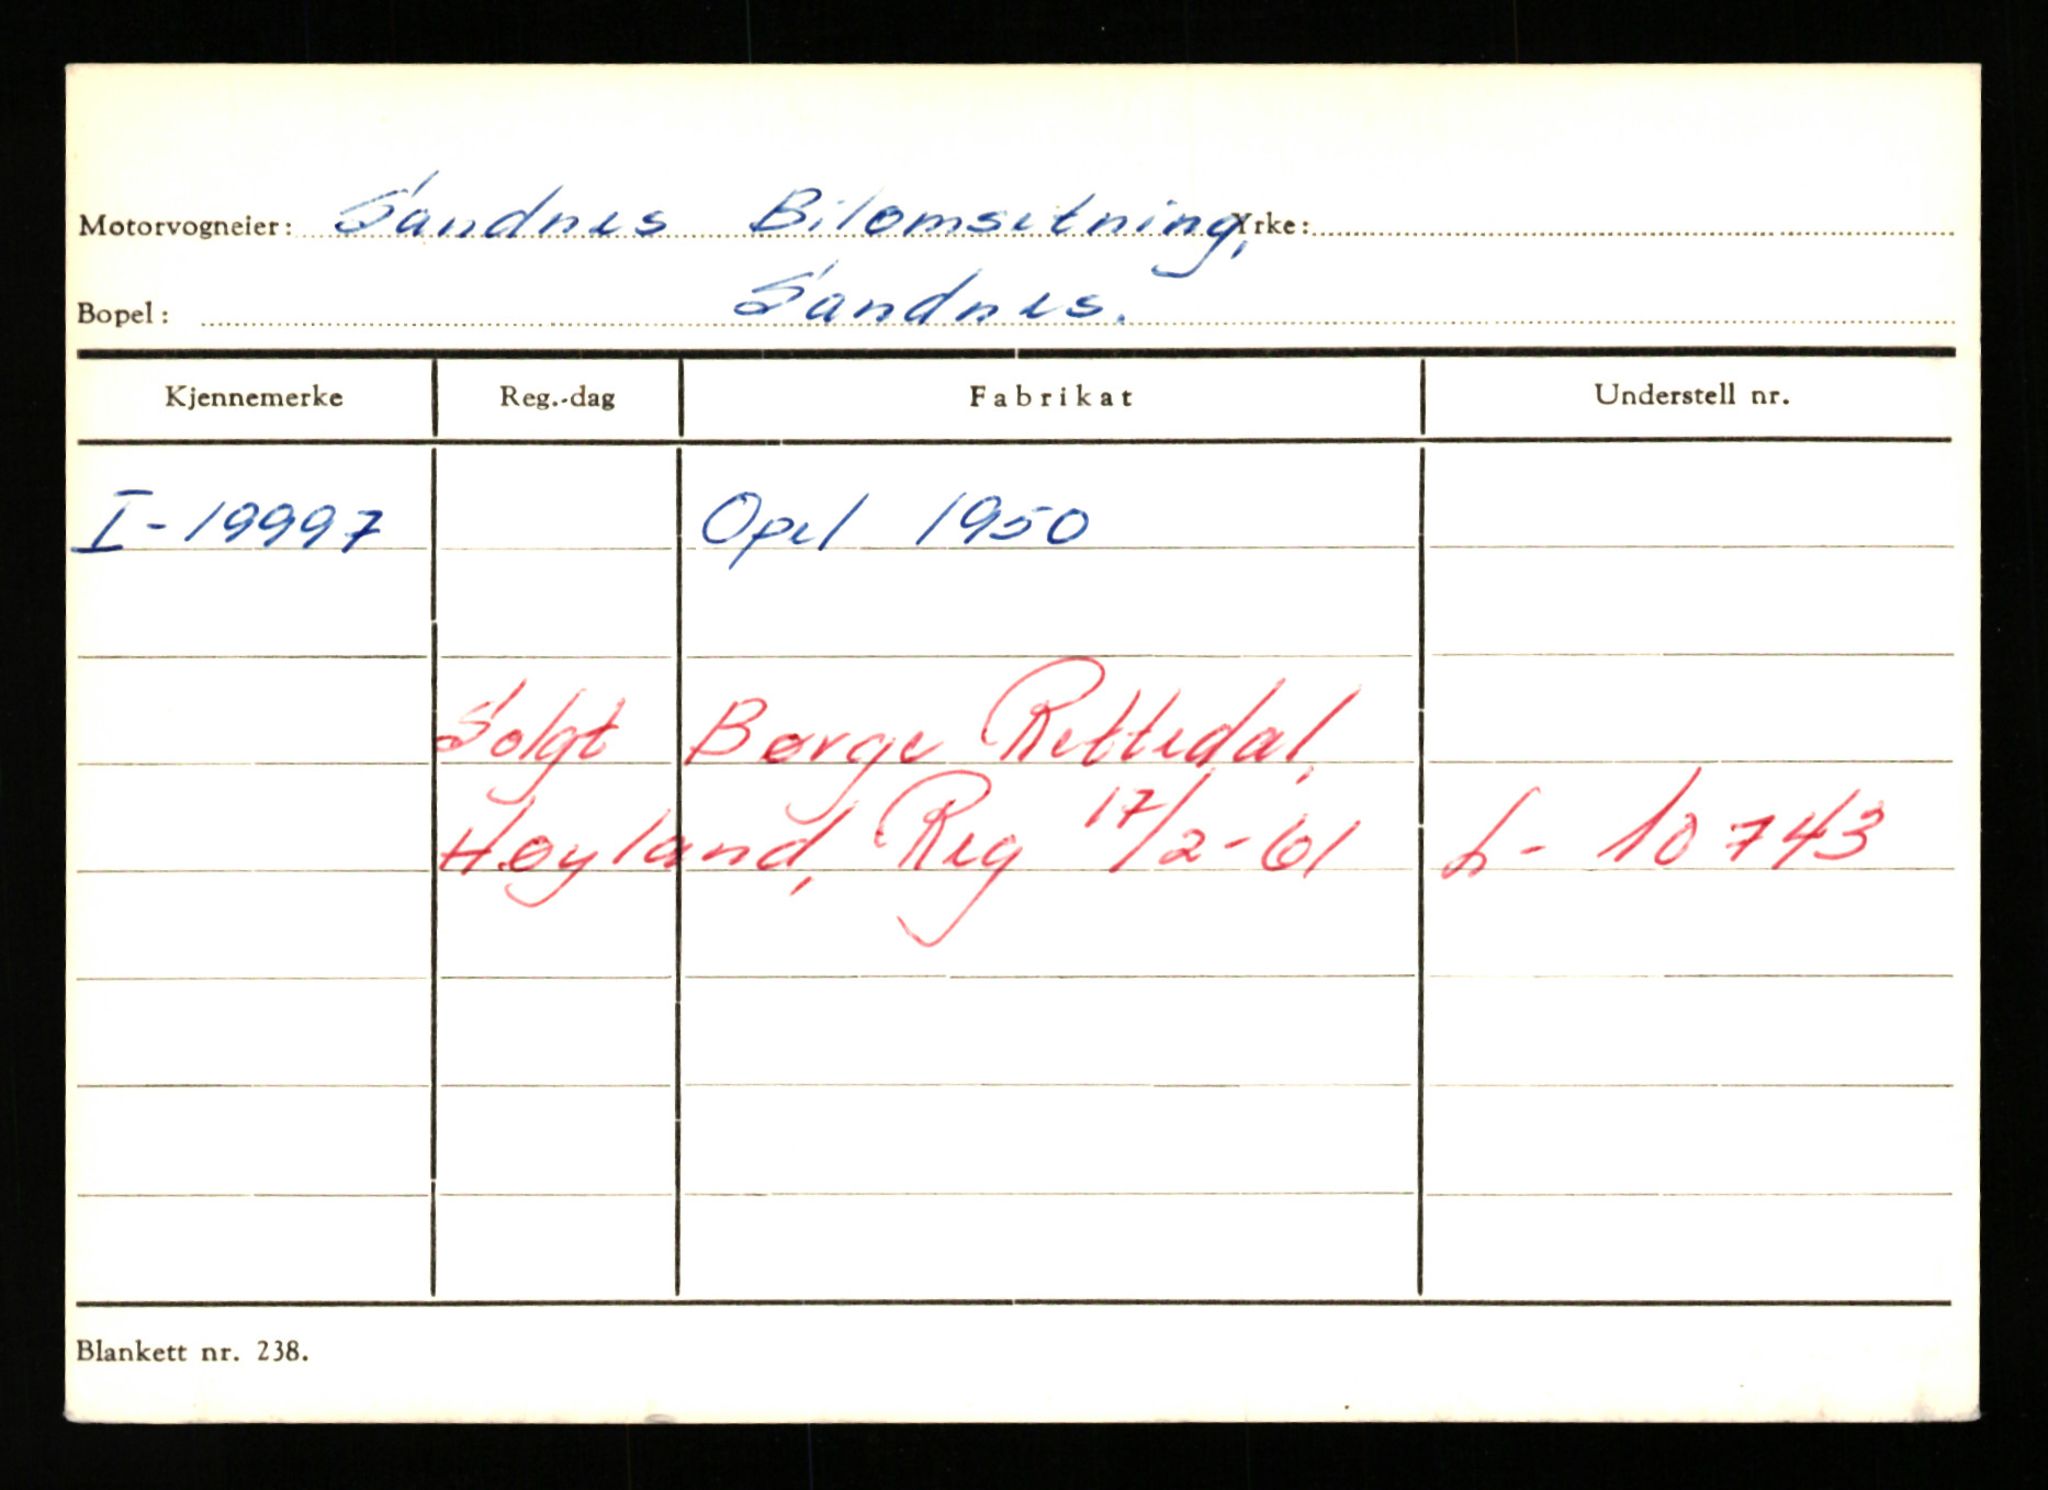 Motorvogneier: Sandnes Bilomsetning, Yrke:
Bopel: Sandnes.
Kjennemerke Reg.-dag Fabrikat Understell nr.
I-19997 Opel 1950
Solgt Børge Rettedal,
Høyland, Reg 17/2-61 L-10743
Blankett nr. 238.